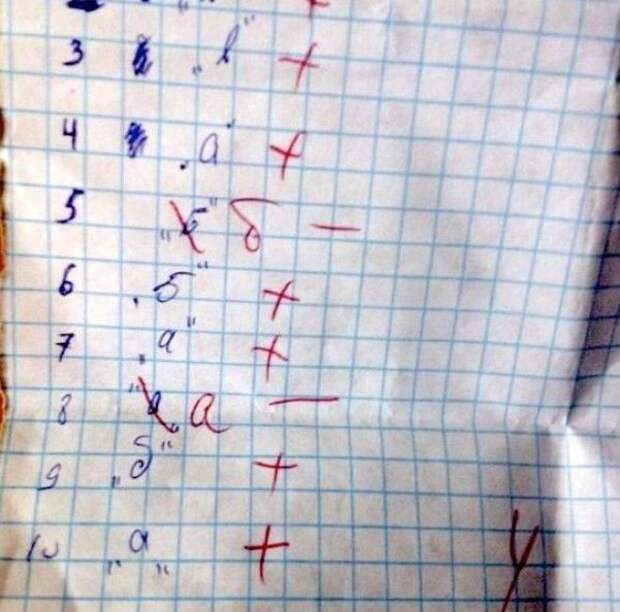 3 „в" +
4 „а" +
5 „б" б —
6 „б" +
7 „а" +
8 а —
9 „б" +
10 „а" +